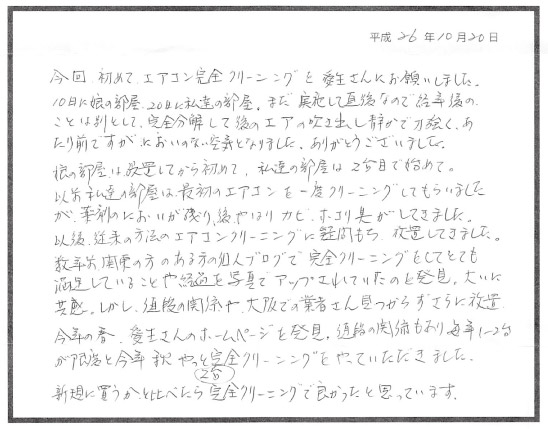 平成 26 年 10 月 20 日
今回、初めて、エアコン完全クリーニングを愛生さんにお願いしました。
10日に娘の部屋、20日に私達の部屋。まだ実施して直後なので経年後の
ことは別として、完全分解して後のエアの吹き出し静かで力強く、あ
たり前ですがにおいのない空気となりました。ありがとうございました。
娘の部屋は設置してから初めて、私達の部屋は2台目で始めて。
以前私達の部屋は、最初のエアコンを一度クリーニングしてもらいました
が、薬剤のにおいが残り、後やはりカビ、ホコリ臭がしてきました。
以後、従来の方法のエアコンクリーニングに疑問もち、放置してきました。
数年前、関東の方のある方の個人ブログで完全クリーニングをしてとても
満足していることや経過を写真でアップされていたのを発見。大いに
共感。しかし、値段の関係や、大阪での業者さん見つからずさらに放置。
今年の春、愛生さんのホームページを発見。値段の関係もあり毎年1~2台
が限度と今年秋やっと完全クリーニングをやていただきました。
2台
新規に買うかと比べたら完全クリーニングで良かったと思っています。